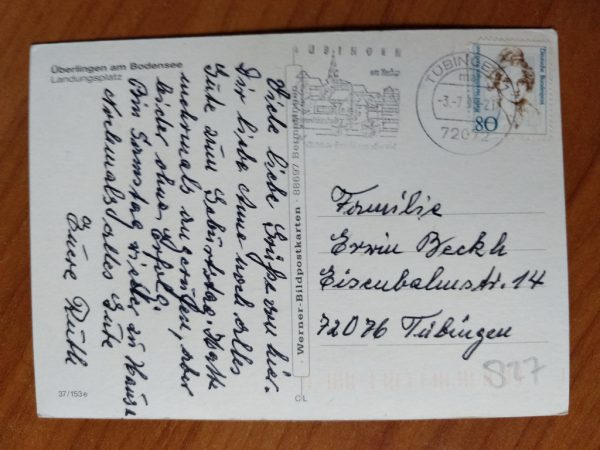 Überlingen am Bodensee
Landungsplatz
Viele liebe Grüße von hier.
Dir liebe Anne noch alles
Gute zum Geburtstag. Hatte
mehrmals angerufen, aber
leider ohne Erfolg.
Bin Samstag wieder zu Hause
Nochmals alles Gute
Euere Ruth
37/153e
Werner-Bildpostkarten · 88697 Bermatingen
CL
TÜBINGEN
am Neckar
TÜBINGEN
-3.-7
72072
Deutsche Bundespost
80
Familie
Erwin Beckh
Eisenbahnstr. 14
72076 Tübingen
827